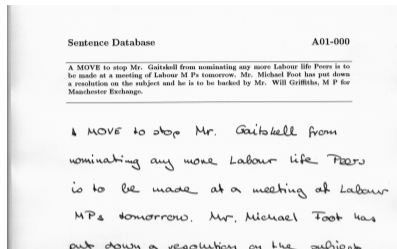 Sentence Database A01-000
A MOVE to stop Mr. Gaitskell from nominating any more Labour life Peers is to
be made at a meeting of Labour M Ps tomorrow. Mr. Michael Foot has put down
a resolution on the subject and he is to be backed by Mr. Will Griffiths, M P for
Manchester Exchange.
A MOVE to stop Mr. Gaitskell from
nominating any more Labour life Peers
is to be made at a meeting of Labour
MPs tomorrow. Mr. Michael Foot has
put down a resolution on the subject